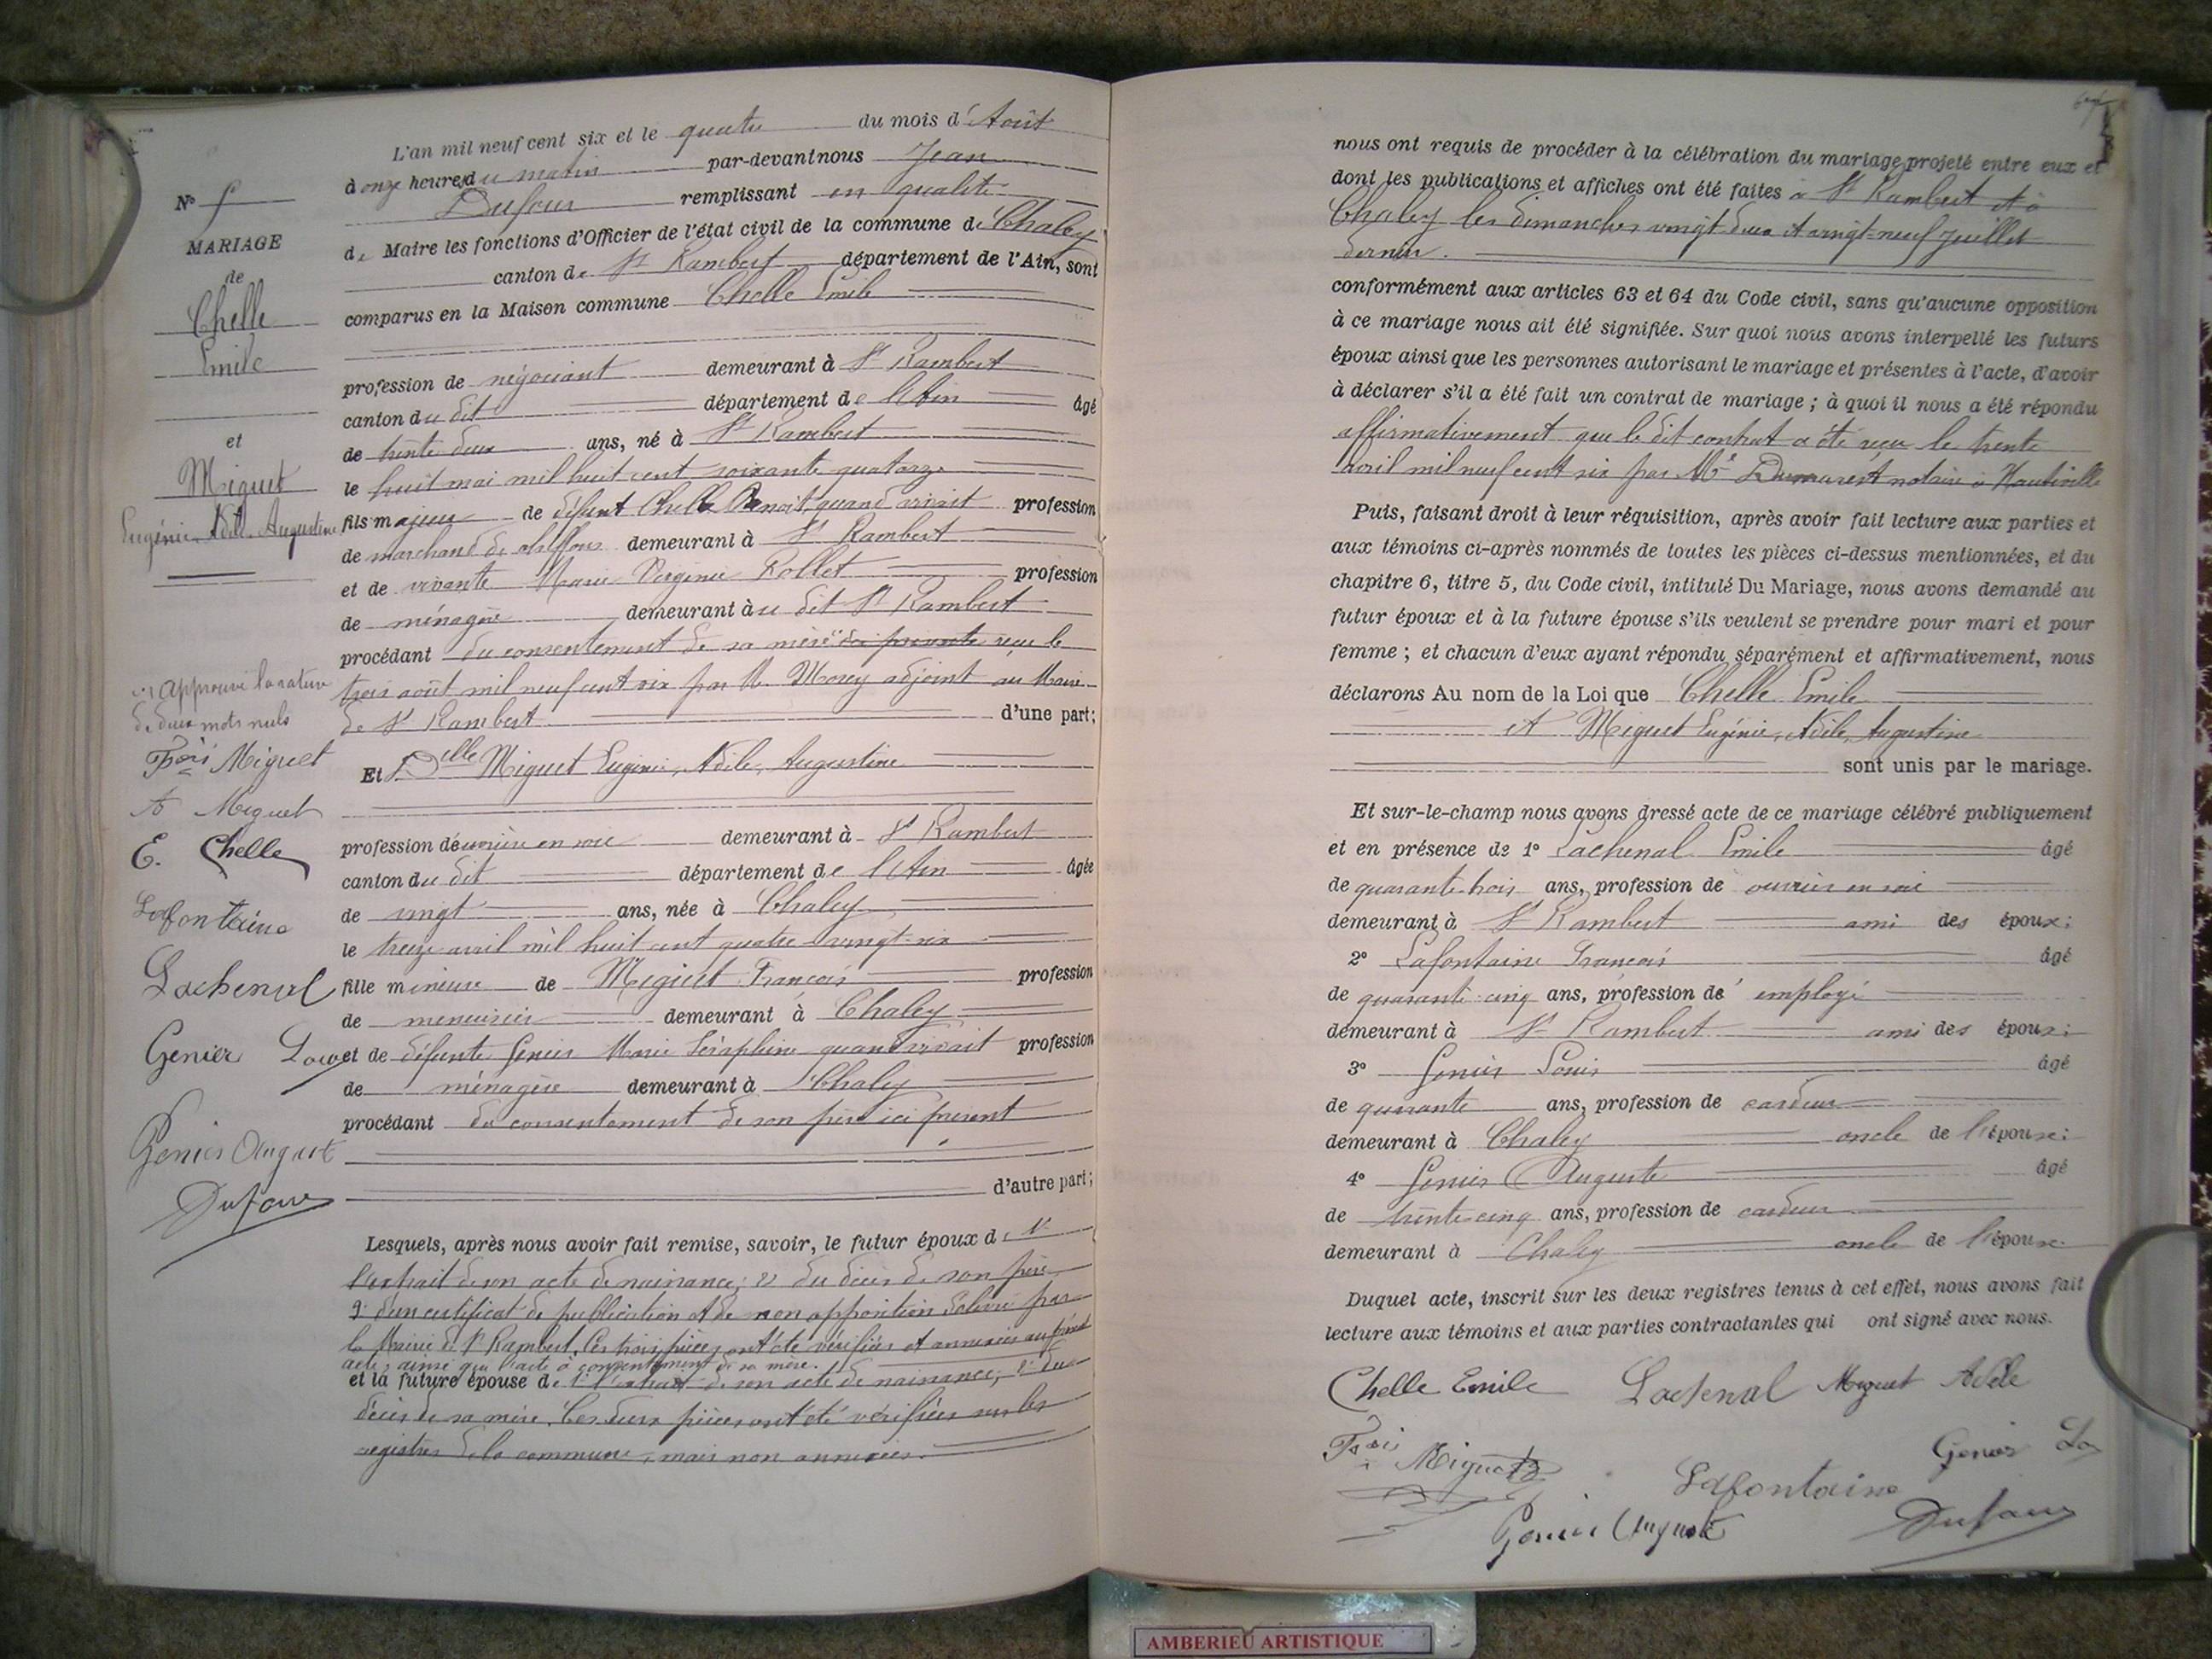 N°
MARIAGE
de
Chelle
Emile
et
Miguet
Eugénie Adèle Augustine
approuvé la rature
de deux mots nuls
Fçois Miguet
A Miguet
E. Chelle
Lafontaine
Lachenal
Genier Louis
Genier August
Dufour
L'an mil neuf cent six et le quatre du mois d'Août
à onze heures du matin par-devant nous Jean
Dufour remplissant en qualité
de Maire les fonctions d'Officier de l'état civil de la commune de Chaley
canton de St Rambert département de l'Ain, sont
comparus en la Maison commune Chelle Emile
profession de négociant demeurant à St Rambert
canton du dit département de l'Ain âgé
de trente deux ans, né à St Rambert
le huit mai mil huit cent soixante quatorze
fils majeur de défunt Chelle Benoit, quand vivait profession
de marchand de chiffons demeurant à St Rambert
et de vivante Marie Virginie Rollet profession
de ménagère demeurant au dit St Rambert
procédant du consentement de sa mère ici présente reçu le
trois août mil neuf cent six par M. Morey adjoint au Maire
de St Rambert d'une part;
Et Delle Miguet Eugénie, Adèle, Augustine
profession d'ouvrière en soie demeurant à St Rambert
canton du dit département de l'Ain âgée
de vingt ans, née à Chaley
le treize avril mil huit cent quatre-vingt-six
fille mineure de Miguet François profession
de menuisier demeurant à Chaley
et de défunte Genier Marie Séraphine quand vivait profession
de ménagère demeurant à Chaley
procédant du consentement de son père ici présent
d'autre part;
Lesquels, après nous avoir fait remise, savoir, le futur époux de 1°
l'extrait de son acte de naissance; 2° du décès de son père
3° d'un certificat de publication et de non opposition délivré par
la Mairie de St Rambert. Ces trois pièces ont été vérifiées et annexées au présent
acte, ainsi que l'acte à consentement de sa mère.
et la future épouse de 1° l'extrait de son acte de naissance; 2° du
décès de sa mère. Ces deux pièces ont été vérifiées sur les
registres de la commune, mais non annexées.
nous ont requis de procéder à la célébration du mariage projeté entre eux et
dont les publications et affiches ont été faites à St Rambert et à
Chaley les dimanches vingt deux et vingt-neuf Juillet
dernier.
conformément aux articles 63 et 64 du Code civil, sans qu'aucune opposition
à ce mariage nous ait été signifiée. Sur quoi nous avons interpellé les futurs
époux ainsi que les personnes autorisant le mariage et présentes à l'acte, d'avoir
à déclarer s'il a été fait un contrat de mariage; à quoi il nous a été répondu
affirmativement que le dit contrat a été reçu le trente
avril mil neuf cent six par Me Dumarest notaire à Hauteville
Puis, faisant droit à leur réquisition, après avoir fait lecture aux parties et
aux témoins ci-après nommés de toutes les pièces ci-dessus mentionnées, et du
chapitre 6, titre 5, du Code civil, intitulé Du Mariage, nous avons demandé au
futur époux et à la future épouse s'ils veulent se prendre pour mari et pour
femme; et chacun d'eux ayant répondu séparément et affirmativement, nous
déclarons Au nom de la Loi que Chelle Emile
et Miguet Eugénie, Adèle, Augustine
sont unis par le mariage.
Et sur-le-champ nous avons dressé acte de ce mariage célébré publiquement
et en présence de 1° Lachenal Emile âgé
de quarante-trois ans, profession de ouvrier en soie
demeurant à St Rambert ami des époux;
2° Lafontaine François âgé
de quarante-cinq ans, profession de employé
demeurant à St Rambert ami des époux;
3° Genier Louis âgé
de quarante ans, profession de cardeur
demeurant à Chaley oncle de l'épouse;
4° Genier Auguste âgé
de trente-cinq ans, profession de cardeur
demeurant à Chaley oncle de l'épouse.
Duquel acte, inscrit sur les deux registres tenus à cet effet, nous avons fait
lecture aux témoins et aux parties contractantes qui ont signé avec nous.
Chelle Emile Lachenal Miguet Adèle
Fçois Miguet Lafontaine Genier Lo
Genier August Dufour
AMBERIEU ARTISTIQUE